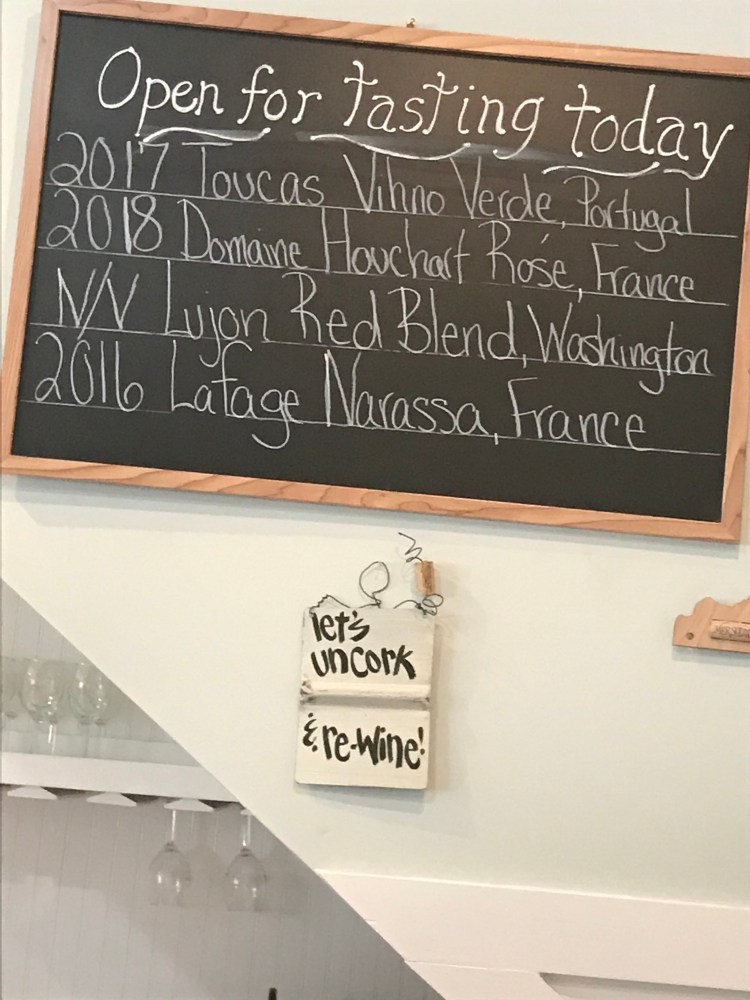 Open for tasting today
2017 Toucas Vihno Verde, Portugal
2018 Domaine Houchart Rosé, France
N/V Lujon Red Blend, Washington
2016 Lafage Narassa, France
let's
uncork
& re-wine!